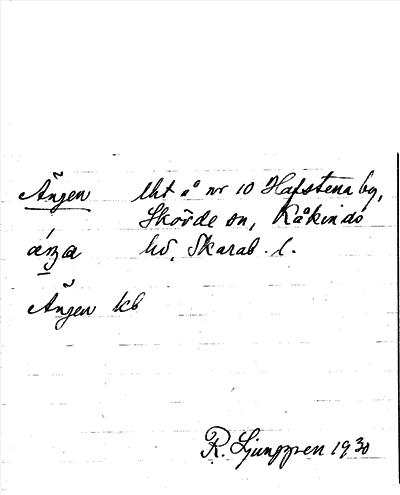 Ängen lht å nr 10 Hafstena by,
Skövde sn, Kåkinds
äŋa hd, Skarab. l.
Ängen kb
R. Ljunggren 1930